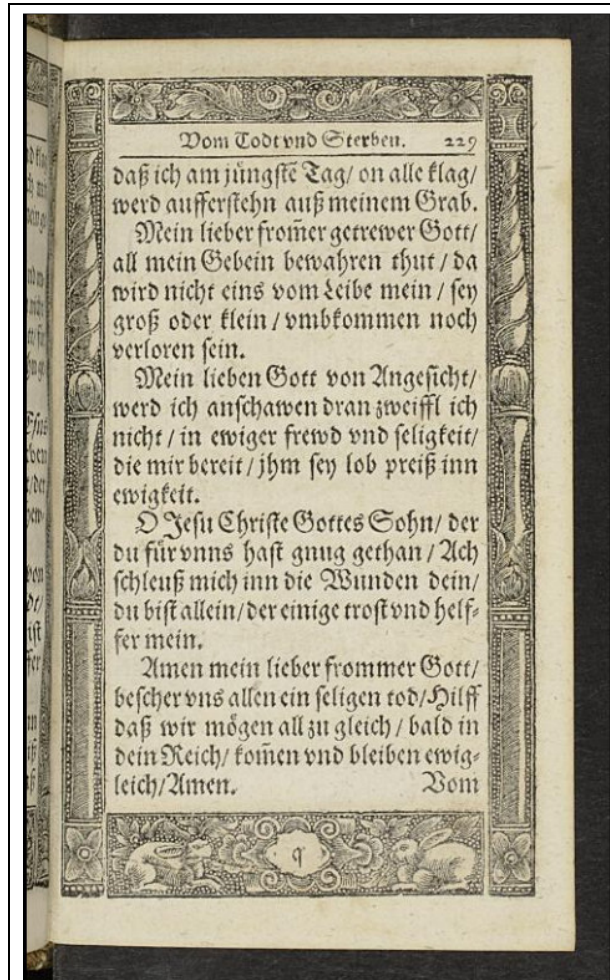 Vom Todt vnd Sterben. 229
daß ich am jüngstē Tag/ on alle klag/
werd aufferstehn auß meinem Grab.
Mein lieber from̃er getrewer Gott/
all mein Gebein bewahren thut / da
wird nicht eins vom Leibe mein / sey
groß oder klein / vmbkommen noch
verloren sein.
Mein lieben Gott von Angesicht/
werd ich anschawen dran zweiffl ich
nicht / in ewiger frewd vnd seligkeit/
die mir bereit / jhm sey lob preiß inn
ewigkeit.
O Jesu Christe Gottes Sohn/ der
du für vnns hast gnug gethan / Ach
schleuß mich inn die Wunden dein/
du bist allein/ der einige trost vnd helf-
fer mein.
Amen mein lieber frommer Gott/
bescher vns allen ein seligen tod/ Hilff
daß wir mögen all zu gleich / bald in
dein Reich/ kom̃en vnd bleiben ewig-
leich/ Amen. Vom
q